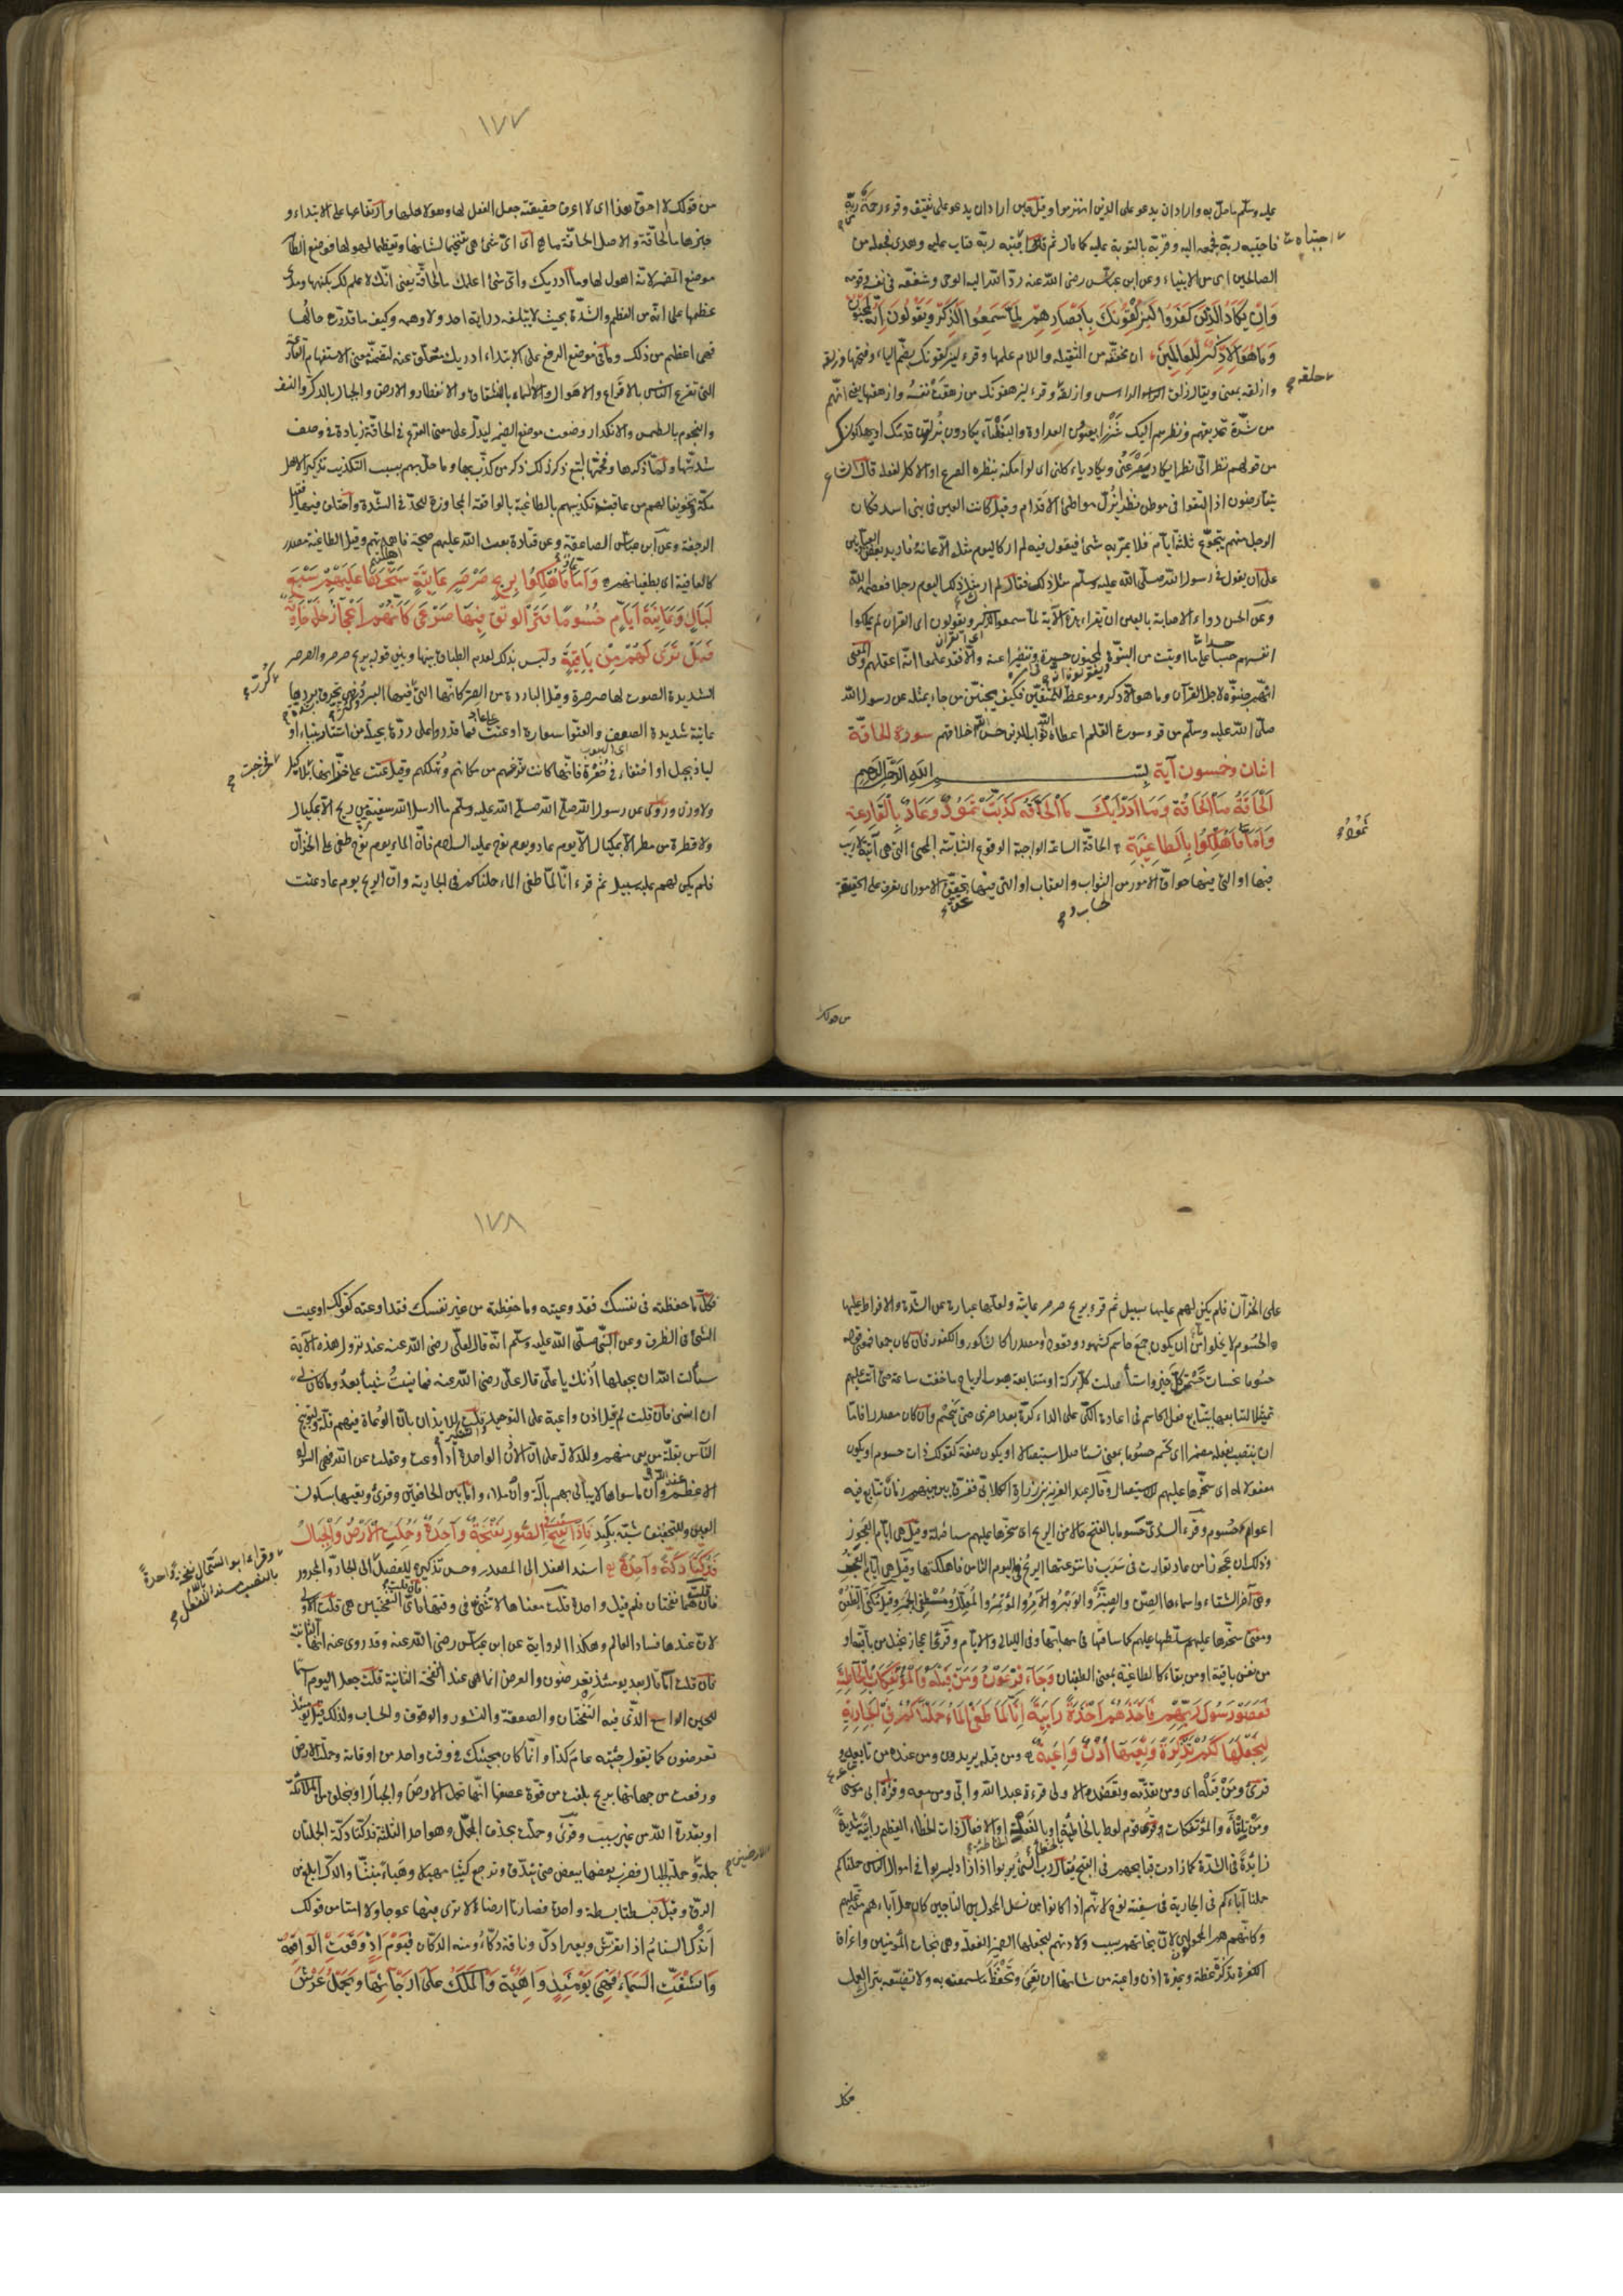 عليه وسلم ما حل به واراد ان يدعو على الذين انهزموا وقيل حين اراد ان يدعو على ثقيف وقرء رحمة من ربه
فاجتبيه ربه فجمعه اليه وقربه بالتوبة عليه كما قال ثم اجتبيه ربه فتاب عليه وهدى فجعله من
اجتباه
الصالحين اى من الانبياء وعن ابن عباس رضى الله عنه رد الله اليه الوحى وشفعه فى نفسه وقومه
وَاِنْ يَكَادُ الَّذِينَ كَفَرُوا لَيُزْلِقُونَكَ بِاَبْصَارِهِمْ لَمَّا سَمِعُوا الذِّكْرَ وَيَقُولُونَ اِنَّهُ لَمَجْنُونٌ
وَمَا هُوَ اِلَّا ذِكْرٌ لِلْعَالَمِينَ ان مخففة من الثقيلة واللام علمها وقرء ليزلقونك بضم الياء وفتحها وزلقه
وازلقه بمعنى ويقال زلق الراس وازلقه وقرء ليزهقونك من زهقت نفسه وازهقها يعنى انهم
حلقه
من شدة تحديقهم ونظرهم اليك شزرا بعيون العداوة والبغضاء يكادون يزلون قدمك او يهلكونك
من قولهم نظر الى نظرا يكاد يصرعنى ويكاد ياءكلنى اى لو امكنه بنظره الصرع او الاكل لفعله قال الشاعر
يتقارضون اذا التقوا فى موطن نظرا يزل مواطئ الاقدام وقيل كانت العين فى بنى اسد فكان
الرجل منهم يتجوع ثلثة ايام فلا يمر به شئ فيقول فيه لم ار كاليوم مثله الا عانه فاريد بعض العيانين
على ان يقول فى رسول الله صلى الله عليه وسلم مثل ذلك فقال لم ار كاليوم رجلا فعصمه الله
وعن الحسن دواء الاصابة بالعين ان تقراء هذه الآية لما سمعوا الذكر ويقولون اى القران لم يملكوا
انفسهم حسدا على ما اوتيت من النبوة لمجنون حيرة وتنفيرا عنه والا فقد علموا انه اعقلهم والمعنى
انهم جننوه لاجل القرآن وما هو الا ذكر وموعظة للعالمين فكيف يجنن من جاء بمثله عن رسول الله
صلى الله عليه وسلم من قرء سورة القلم اعطاه الله ثواب الذين حسن الله اخلاقهم سورة الحاقة
اثنان وخمسون آية بسم الله الرحمن الرحيم
اَلْحَاقَّةُ مَا الْحَاقَّةُ وَمَا اَدْرٰيكَ مَا الْحَاقَّةُ كَذَّبَتْ ثَمُودُ وَعَادٌ بِالْقَارِعَةِ
فَاَمَّا ثَمُودُ
وَاَمَّا فَاُهْلِكُوا بِالطَّاغِيَةِ الحاقة الساعة الواجبة الوقوع الثابتة المجئ التى هى آتية لا ريب
فيها او التى فيها حواق الامور من الثواب والعقاب او التى فيها تحقق الامور اى تعرف على الحقيقة
من قولك
١٧٧
من قولك لا احق هذا اى لا اعرف حقيقته جعل الفعل لها وهو لاهلها وارتفاعها على الابتداء و
خبرها ما الحاقة والاصل الحاقة ما هى اى اى شئ هى تفخيما لشانها وتعظيما لهولها فوضع الظاهر
موضع المضمر لانه اهول لها وما ادريك واى شئ اعلمك ما الحاقة يعنى انك لا علم لك بكنهها ومدى
عظمها على انه من العظم والشدة بحيث لا يبلغه دراية احد ولا وهمه وكيف ما قدرت حالها
فهى اعظم من ذلك وما فى موضع الرفع على الابتداء ادريك معلق عنه لتضمنه معنى الاستفهام القارعة
التى تقرع الناس بالافزاع والاهوال والسماء بالانشقاق والانفطار والارض والجبال بالدك والنسف
والنجوم بالطمس والانكدار وضعت موضع الضمير ليدل على معنى القرع فى الحاقة زيادة فى وصف
شدتها ولما ذكرها وفخمها اتبع ذكر ذلك ذكر من كذب بها وما حل بهم بسبب التكذيب تذكيرا لاهل
مكة وتخويفا لهم من عاقبة تكذيبهم بالطاغية بالواقعة المجاوزة للحد فى الشدة واختلف فيها فقيل
الرجفة وعن ابن عباس الصاعقة وعن قتادة بعث الله عليهم صيحة فاهمدتهم وقيل الطاغية مصدر
كالعافية اى بطغيانهم وَاَمَّا عَادٌ فَاُهْلِكُوا بِرِيحٍ صَرْصَرٍ عَاتِيَةٍ سَخَّرَهَا عَلَيْهِمْ سَبْعَ
لَيَالٍ وَثَمَانِيَةَ اَيَّامٍ حُسُومًا فَتَرَى الْقَوْمَ فِيهَا صَرْعَى كَاَنَّهُمْ اَعْجَازُ نَخْلٍ خَاوِيَةٍ
فَهَلْ تَرَى لَهُمْ مِنْ بَاقِيَةٍ وليس بذلك لعدم الطباق بينها وبين قوله بريح صرصر والصرصر
الشديدة الصوت لها صرصرة وقيل الباردة من الصر كانها التى فيها البرد وكثر فهى تحرق بردها
كرر
عاتية شديدة العصف والعتو استعارة او عتت على عاد فما قدروا على ردها بحيلة من استتار ببناء او
لياذ بجبل او اختفاء فى حفرة فانها كانت تنزعهم من مكانهم وتهلكهم وقيل عتت على خزانها بلا كيل
فخرجت
ولا وزن وروى عن رسول الله صلى الله عليه وسلم ما ارسل الله سفينة من ريح الا بمكيال
ولا قطرة من مطر الا بمكيال الا يوم عاد ويوم نوح عليه السلام فان الماء يوم نوح طغى على الخزان
فلم يكن لهم عليه سبيل ثم قرء انا لما طغى الماء حملناكم فى الجارية وان الريح يوم عاد عتت
على الخزان فلم يكن لهم عليها سبيل ثم قرء بريح صرصر عاتية ولعلها عبارة عن الشدة والافراط عليها
والحسوم لا يخلوا من ان يكون جمع حاسم كشهود وقعود او مصدرا كالشكور والكفور فان كان جمعا فمعنى قوله
حسوما نحسات حسمت كل خير واستأصلت كل بركة او متتابعة هبوب الرياح ما خفت ساعة حتى اتت عليهم
تمثيلا لتتابعها بتتابع فعل الحاسم فى اعادة الكى على الداء كرة بعد اخرى حتى ينحسم وان كان مصدرا فاما
ان ينتصب بفعله مضمرا اى تحسم حسوما بمعنى تستأصل استيصالا او يكون صفة كقولك ذات حسوم او يكون
مفعولا له اى سخرها عليهم للاستيصال وقال عبد العزيز بن زرارة الكلابى ففرق بين بينهم زمان تتابع فيه
اعوام حسوم وقرء السدى حسوما بالفتح حالا من الريح اى سخرها عليهم مستأصلة وقيل هى ايام العجوز
وذلك ان عجوزا من عاد توارت فى سرب فانتزعتها الريح فى اليوم الثامن فاهلكتها وقيل هى ايام العجز
وهى آخر الشتاء واسماءها الصن والصنبر والوبر والآمر والمؤتمر والمعلل ومطفى الجمر وقيل مكفى الظعن
ومعنى سخرها عليهم سلطها عليهم كما ساقها فى مهابتها وفى الليالى والايام وقرئ اعجاز نخيل من باقية او
من نفس باقية او من بقاء كالطاغية بمعنى الطغيان وَجَاءَ فِرْعَوْنُ وَمَنْ قَبْلَهُ وَالْمُؤْتَفِكَاتُ بِالْخَاطِئَةِ
فَعَصَوْا رَسُولَ رَبِّهِمْ فَاَخَذَهُمْ اَخْذَةً رَابِيَةً اِنَّا لَمَّا طَغَى الْمَاءُ حَمَلْنَاكُمْ فِى الْجَارِيَةِ
لِنَجْعَلَهَا لَكُمْ تَذْكِرَةً وَتَعِيَهَا اُذُنٌ وَاعِيَةٌ ومن قبله يريدون ومن عنده من تابعيه و
قرئ ومن قبله اى ومن تقدمه وتعضد الاولى قرءة عبد الله وابى ومن معه وقرءة ابى موسى
ومن تلقاءه والمؤتفكات قرى قوم لوط بالخاطئة او بالفعلة او الافعال ذات الخطاء العظيم رابية شديدة
زايدة فى الشدة كما زادت قبايحهم فى القبح يقال ربا الشئ يربوا اذا زاد ليربوا فى اموال الناس حملناكم
حملنا آباءكم فى الجارية فى سفينة نوح لانهم اذا كانوا من نسل المحمولين الناجين كان حمل آباءهم منة عليهم
وكانهم هم المحمولون لان نجاتهم سبب ولادتهم لنجعلها الضمير للفعلة وهى نجات المؤمنين واغراق
الكفرة تذكرة عظة وعبرة اذن واعية من شانها ان تعى وتحفظ ما سمعته به ولا تضيعه بترك العمل
فكل
١٧٨
فكل ما حفظته فى نفسك فقد وعيته وما حفظته من غير نفسك فقد اوعيته كقولك اوعيت
الشئ فى الظرف وعن النبى صلى الله عليه وسلم انه قال لعلى رضى الله عنه عند نزول هذه الآية
سألت الله ان يجعلها اذنك يا على قال على رضى الله عنه فما نسيت شيئا بعد وما كان لى
ان انسى فان قلت لم قيل اذن واعية على التوحيد والتنكير قلت للايذان بان الوعاة فيهم قلة ولتوبيخ
الناس بقلة من يعى منهم وللدلالة على ان الاذن الواحدة اذا وعت وعقلت عن الله فهى السواد
الاعظم عند الله وان ما سواها لا يبالى بهم بالة وان ملاءوا ما بين الخافقين وقرئ وتعيها بسكون
العين للتخفيف شبه بكبد فَاِذَا نُفِخَ فِى الصُّورِ نَفْخَةٌ وَاحِدَةٌ وَحُمِلَتِ الْاَرْضُ وَالْجِبَالُ
فَدُكَّتَا دَكَّةً وَاحِدَةً اسند الفعل الى المصدر وحسن تذكيره للفصل الى الجار والمجرور
وقراء ابو السمال نفخة واحدة
بالنصب مسندا للفعل
فان قلت هما نفختان فلم قيل واحدة قلت معناها لا تثنى فى وقتها فان قلت فاى النفختين هى قلت الاولى
لان عندها فساد العالم وهكذا الرواية عن ابن عباس رضى الله عنه وقد روى عنه انها الثانية
فان قلت اما قال بعد يومئذ تعرضون والعرض انما هى عند النفخة الثانية قلت جعل اليوم اسما
للحين الواسع الذى فيه النفختان والصعقة والنشور والوقوف والحساب ولذلك قيل يومئذ
تعرضون كما تقول جئته عام كذا وانما كان مجيئك فى وقت واحد من اوقاته وحملت الارض
ورفعت من جهاتها بريح بلغت من قوة عصفها انها تحمل الارض والجبال او بخلق من الملائكة
او بقدرة الله من غير سبب وقرئ وحملت بحذف المحمل وهو احد الثلثة فدكتا دكة الجملتان
جملة الارضين وجملة الجبال فضرب بعضها ببعض حتى تندق وترجع كثيبا مهيلا وهباء منبثا والدك ابلغ من
الدق وقيل فبسطتا بسطة واحدة فصارتا ارضا لا ترى فيها عوجا ولا امتا من قولك
اندك السنام اذا انفرش وبعير ادك وناقة دكاء ومنه الدكان فَيَوْمَئِذٍ وَقَعَتِ الْوَاقِعَةُ
وَانْشَقَّتِ السَّمَاءُ فَهِىَ يَوْمَئِذٍ وَاهِيَةٌ وَالْمَلَكُ عَلَى اَرْجَائِهَا وَيَحْمِلُ عَرْشَ